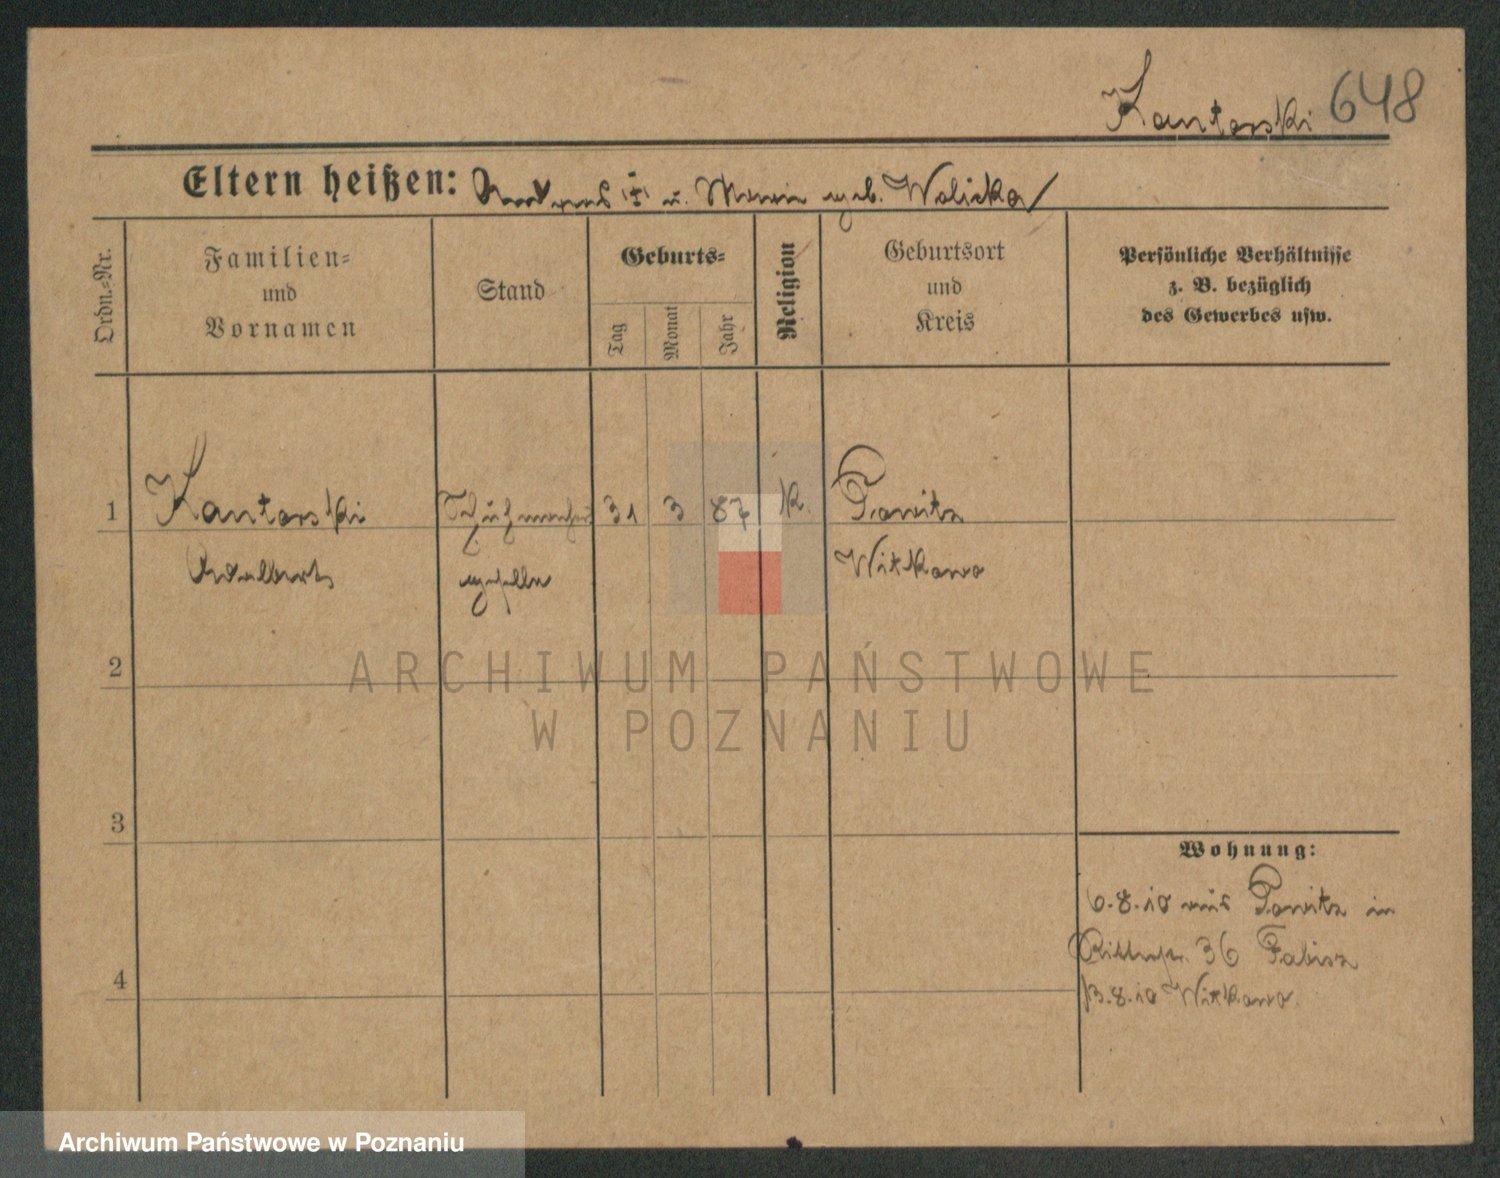 Kantorski 648
Eltern heißen: Andreas † u. Maria geb. Wolicka
Ordn.=Nr.
Familien=
und
Vornamen
Stand
Geburts=
Tag
Monat
Jahr
Religion
Geburtsort
und
Kreis
Persönliche Verhältnisse
z. B. bezüglich
des Gewerbes usw.
1 Kantorski Schuhmacher 31 3 87 K. Powitz
Adalbert geselle Witkowo
2
ARCHIWUM PAŃSTWOWE
W POZNANIU
3
Wohnung:
6.8.10 aus Powitz in
Ritterstr. 36 Fabisz
4
13.8.10 Witkowo.
Archiwum Państwowe w Poznaniu